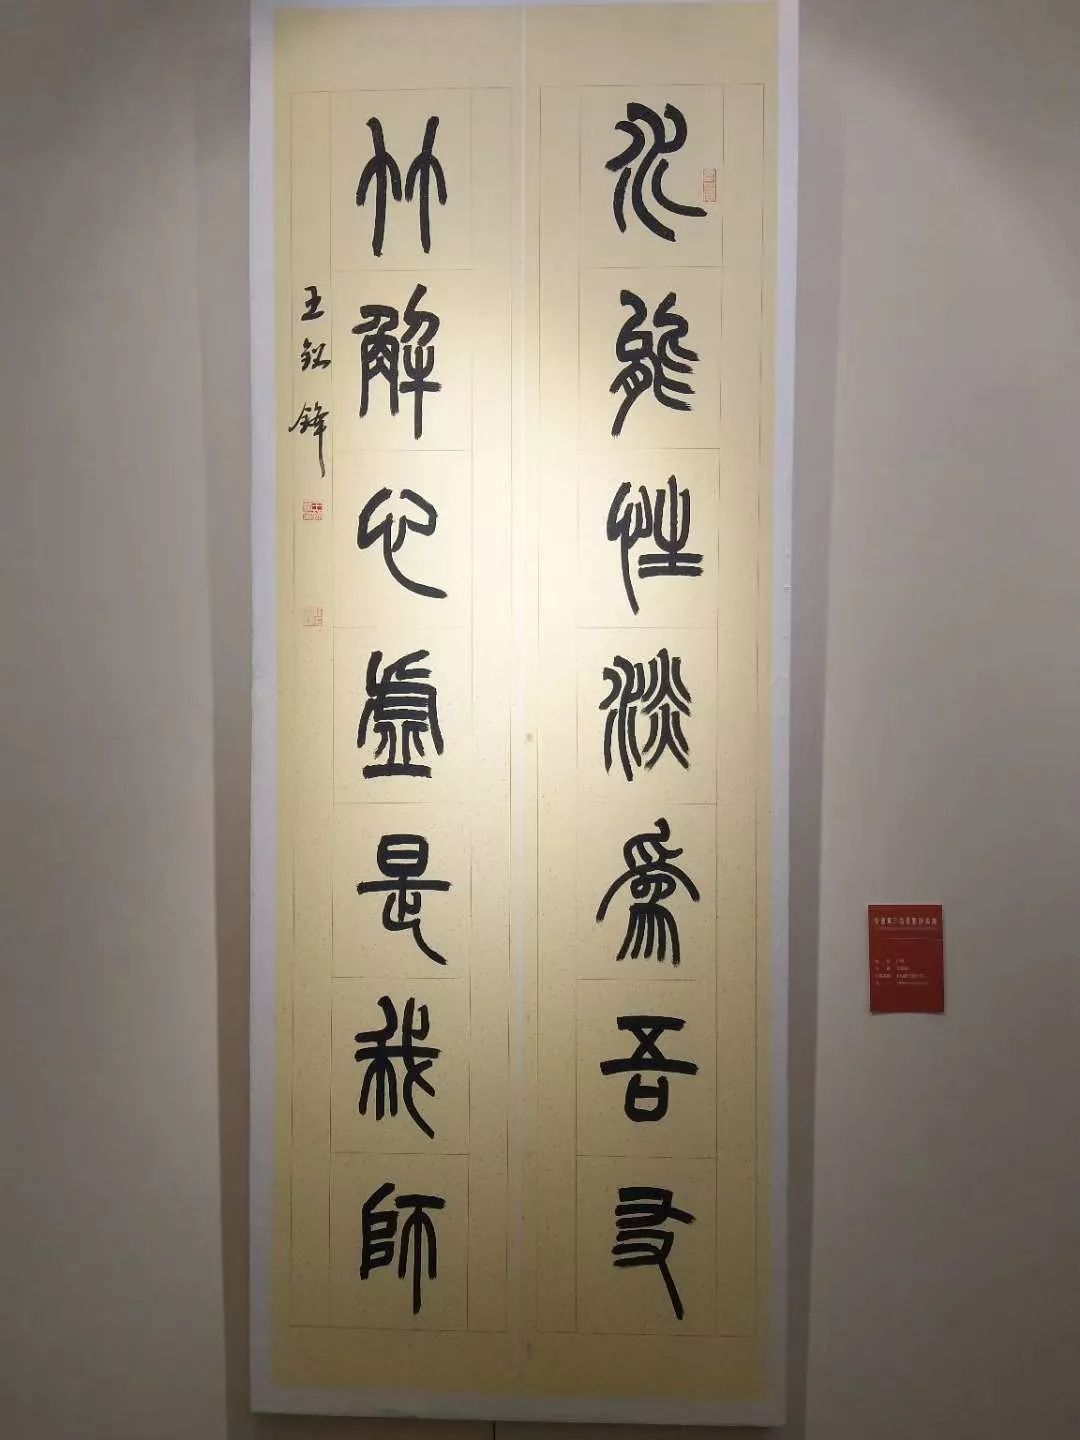 水能性淡爲吾友
竹解心虛是我師
王 鋒